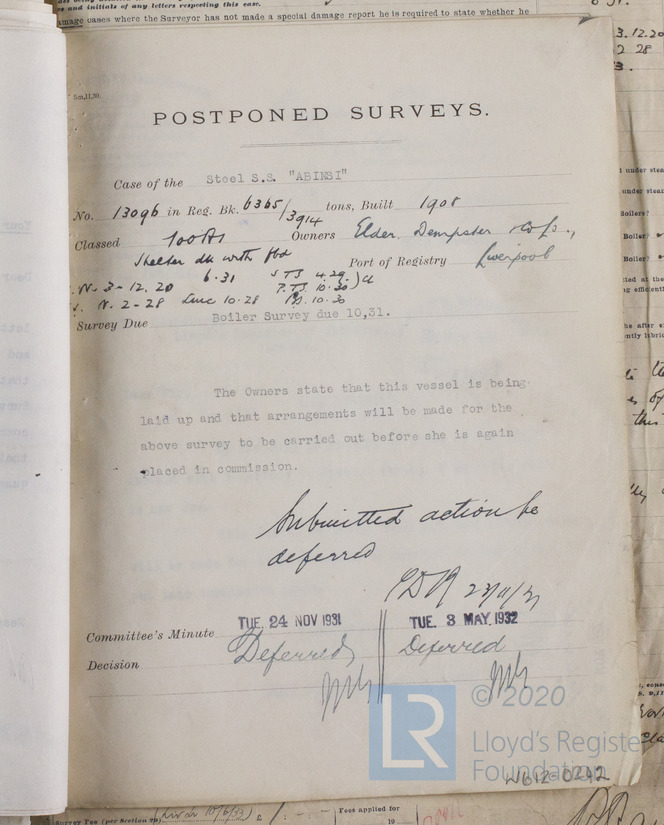 s and initials of any letters respecting this case.
amage cases where the Surveyor has not made a special damage report he is required to state whether he
5m,11,30.
POSTPONED SURVEYS.
Case of the Steel S.S. "ABINSI"
No. 13096 in Reg. Bk. 6365/3914 tons, Built 1908
Classed 100A1 Owners Elder, Dempster & Co Ld.,
Shelter dk with fbd Port of Registry Liverpool
6.31
N. 3-12.20 S TS 4.29
N. 2-28 10.28 10.30
Survey Due Boiler Survey due 10,31.
The Owners state that this vessel is being
laid up and that arrangements will be made for the
above survey to be carried out before she is again
placed in commission.
Submitted action be
deferred
23/11/31
Committee's Minute TUE. 24 NOV 1931 TUE. 3 MAY 1932
Decision Deferred Deferred
LR
© 2020
Lloyd's Register
Foundation
W612-0242
Survey Fee (per Section 29) £ Fees applied for
19